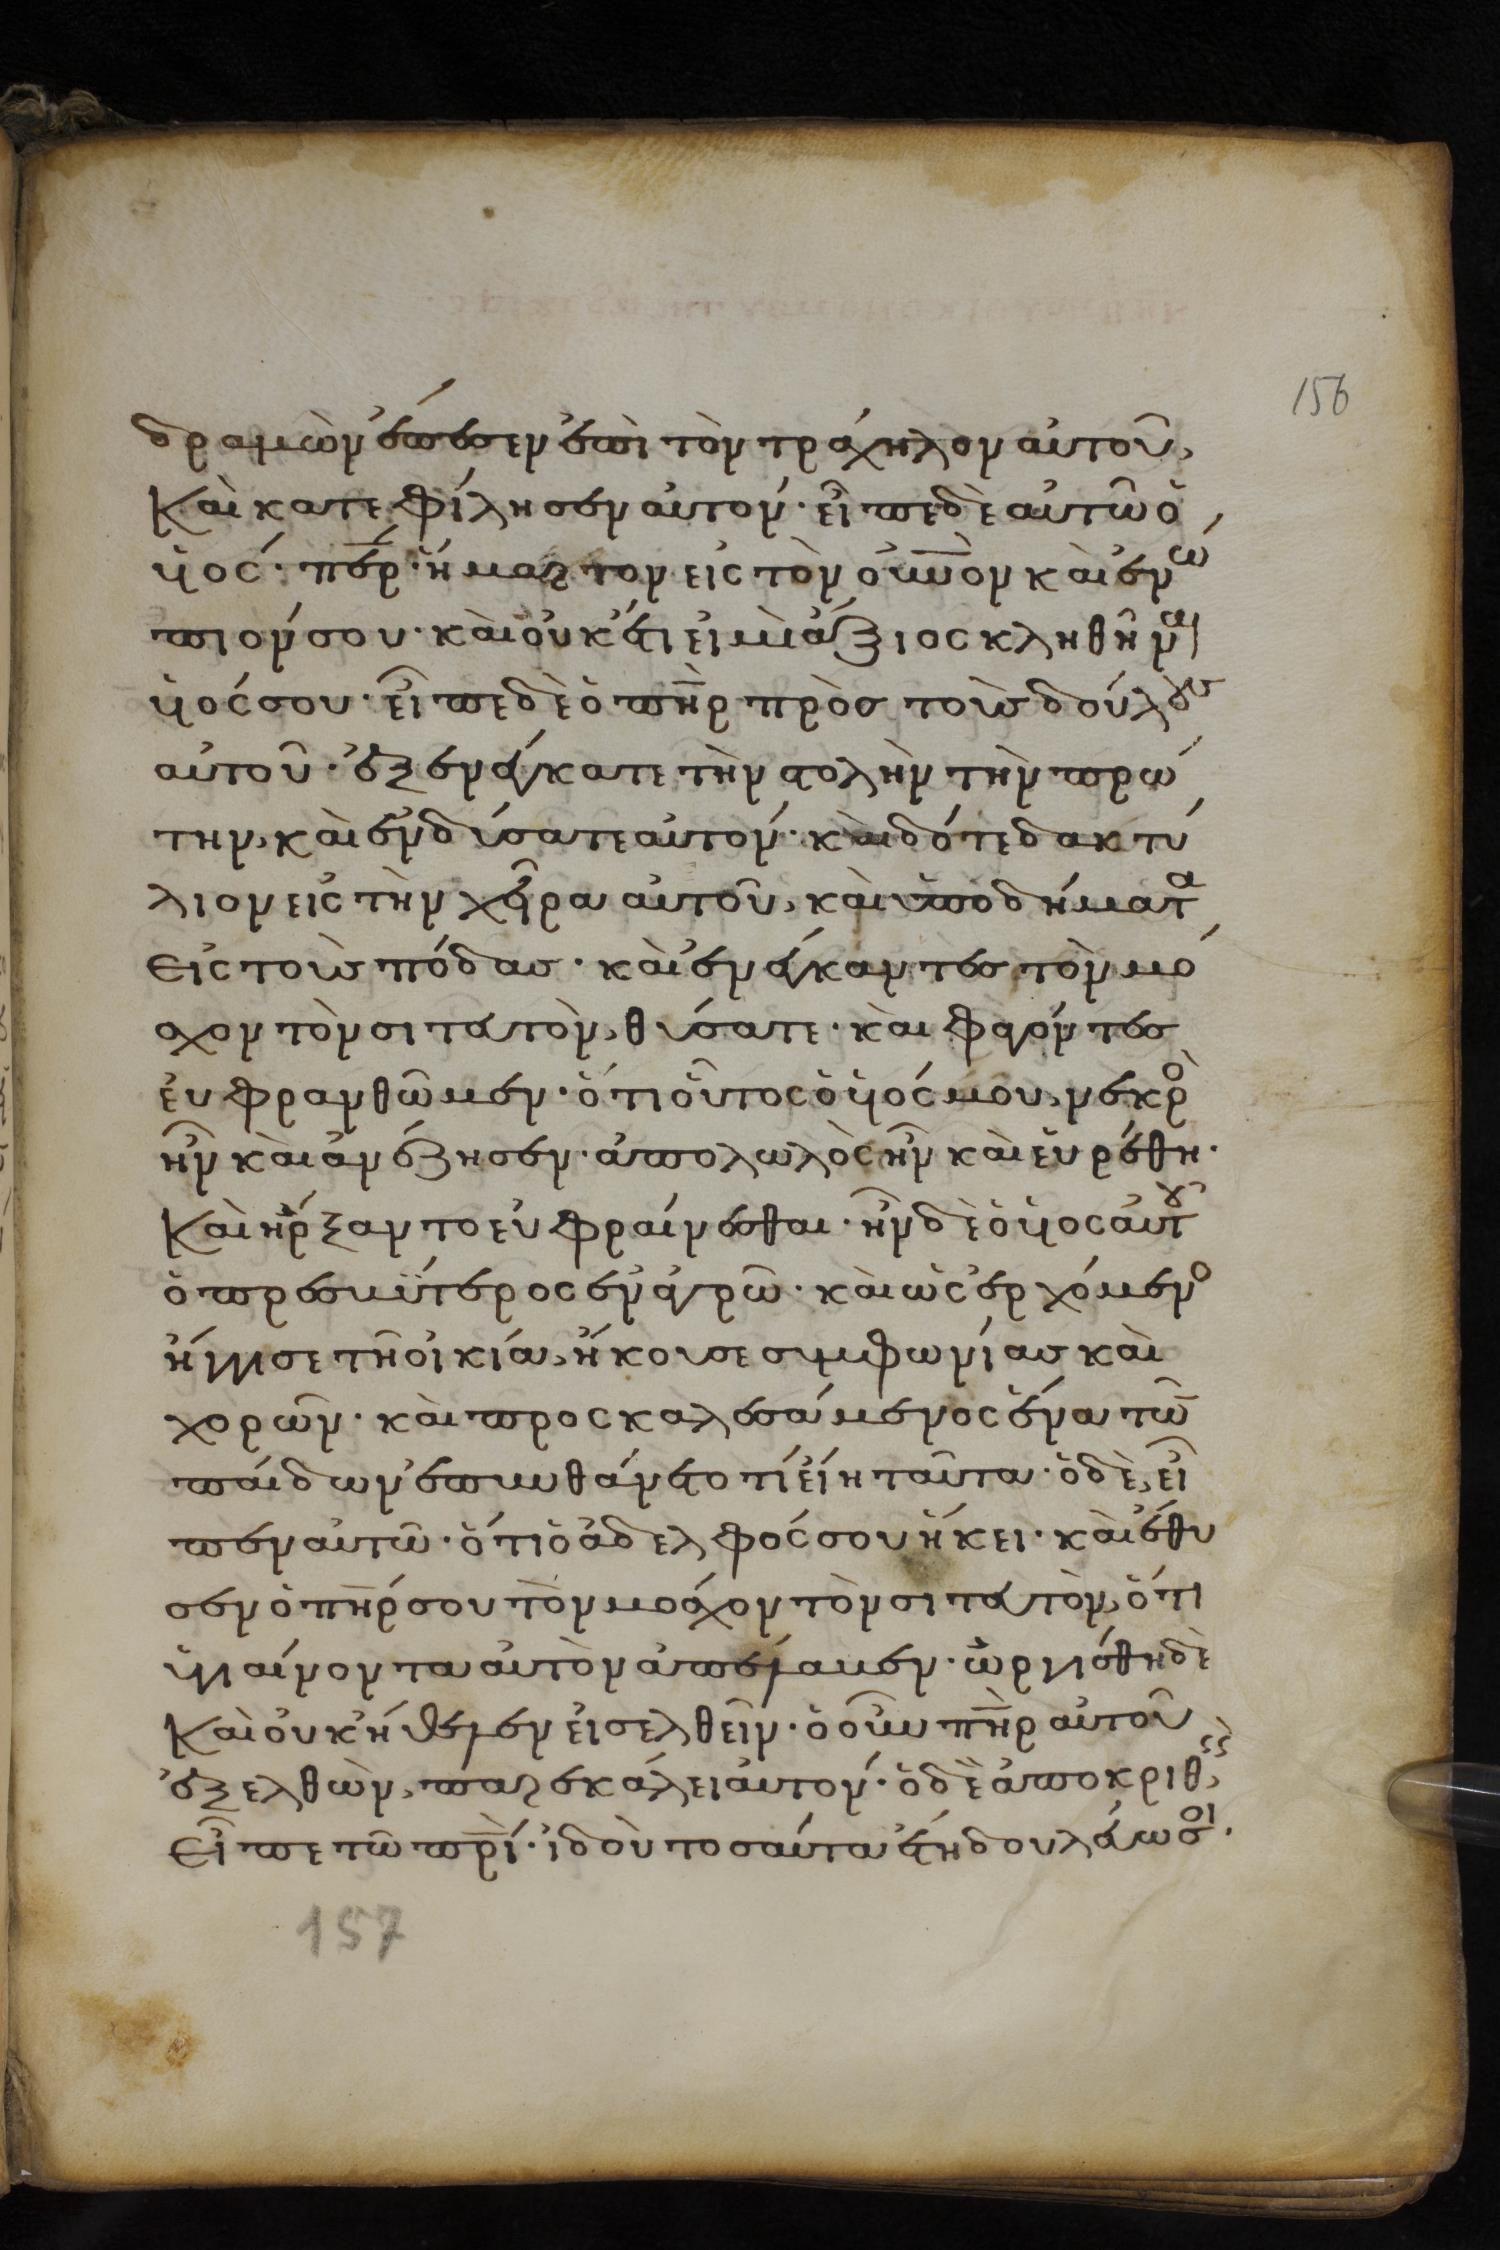 156
δραμὼν ἐπέπεσεν ἐπὶ τὸν τράχηλον αὐτοῦ,
καὶ κατεφίλησεν αὐτόν· εἶπε δὲ αὐτῶ ὁ
ὑιός· πέρ· ἥμαρτον εἰς τὸν οὐνὸν καὶ ἐνώ
πιόν σου· καὶ οὐκέτι εἰμὶ ἄξιος κληθῆναι
ὑιός σου· εἶπε δὲ ὁ πηρ πρὸς τοὺς δούλους
αὐτοῦ· ἐξενέγκατε τὴν στολὴν τὴν πρώ
την, καὶ ἐνδύσατε αὐτόν· καὶ δότε δακτύ
λιον εἰς τὴν χεῖρα αὐτοῦ, καὶ ὑποδήματα
εἰς τοὺς πόδας· καὶ ἐνέγκαντες τὸν μό
σχον τὸν σιτευτὸν, θύσατε· καὶ φαγόντες
εὐφρανθῶμεν· ὅτι οὗτος ὁ ὑιός μου, νεκρὸ
ἦν καὶ ἀνέζησεν· ἀπολωλὸς ἦν καὶ εὑρέθη·
καὶ ἤρξαντο εὐφραίνεσθαι· ἦν δὲ ὁ ὑιος αὐτοῦ
ὁ πρεσβύτερος ἐν ἀγρῶ· καὶ ὡς ἐρχόμενο
ἤγγισε τῆ οἰκία, ἤκουσε συμφωνίας καὶ
χορῶν· καὶ προσκαλεσάμενος ἕνα τῶν
παίδων ἐπυνθάνετο τί εἴη ταῦτα· ὁ δὲ, εἶ
πεν αὐτῶ· ὅτι ὁ ἀδελφός σου ἥκει· καὶ ἔθυ
σεν ὁ πήρ σου τὸν μόσχον τὸν σιτευτὸν, ὅτι
ὑγιαίνοντα αὐτὸν ἀπέλαβεν· ὠργίσθη δὲ
καὶ οὐκ ήθελεν εἰσελθεῖν· ὁ οὖν πὴρ αὐτοῦ
ἐξελθὼν, παρεκάλει αὐτόν· ὁ δὲ ἀποκριθεὶς,
εἶπε τῶ πρί· ἰδοὺ τοσαῦτα ἔτη δουλεύω σοι·
157